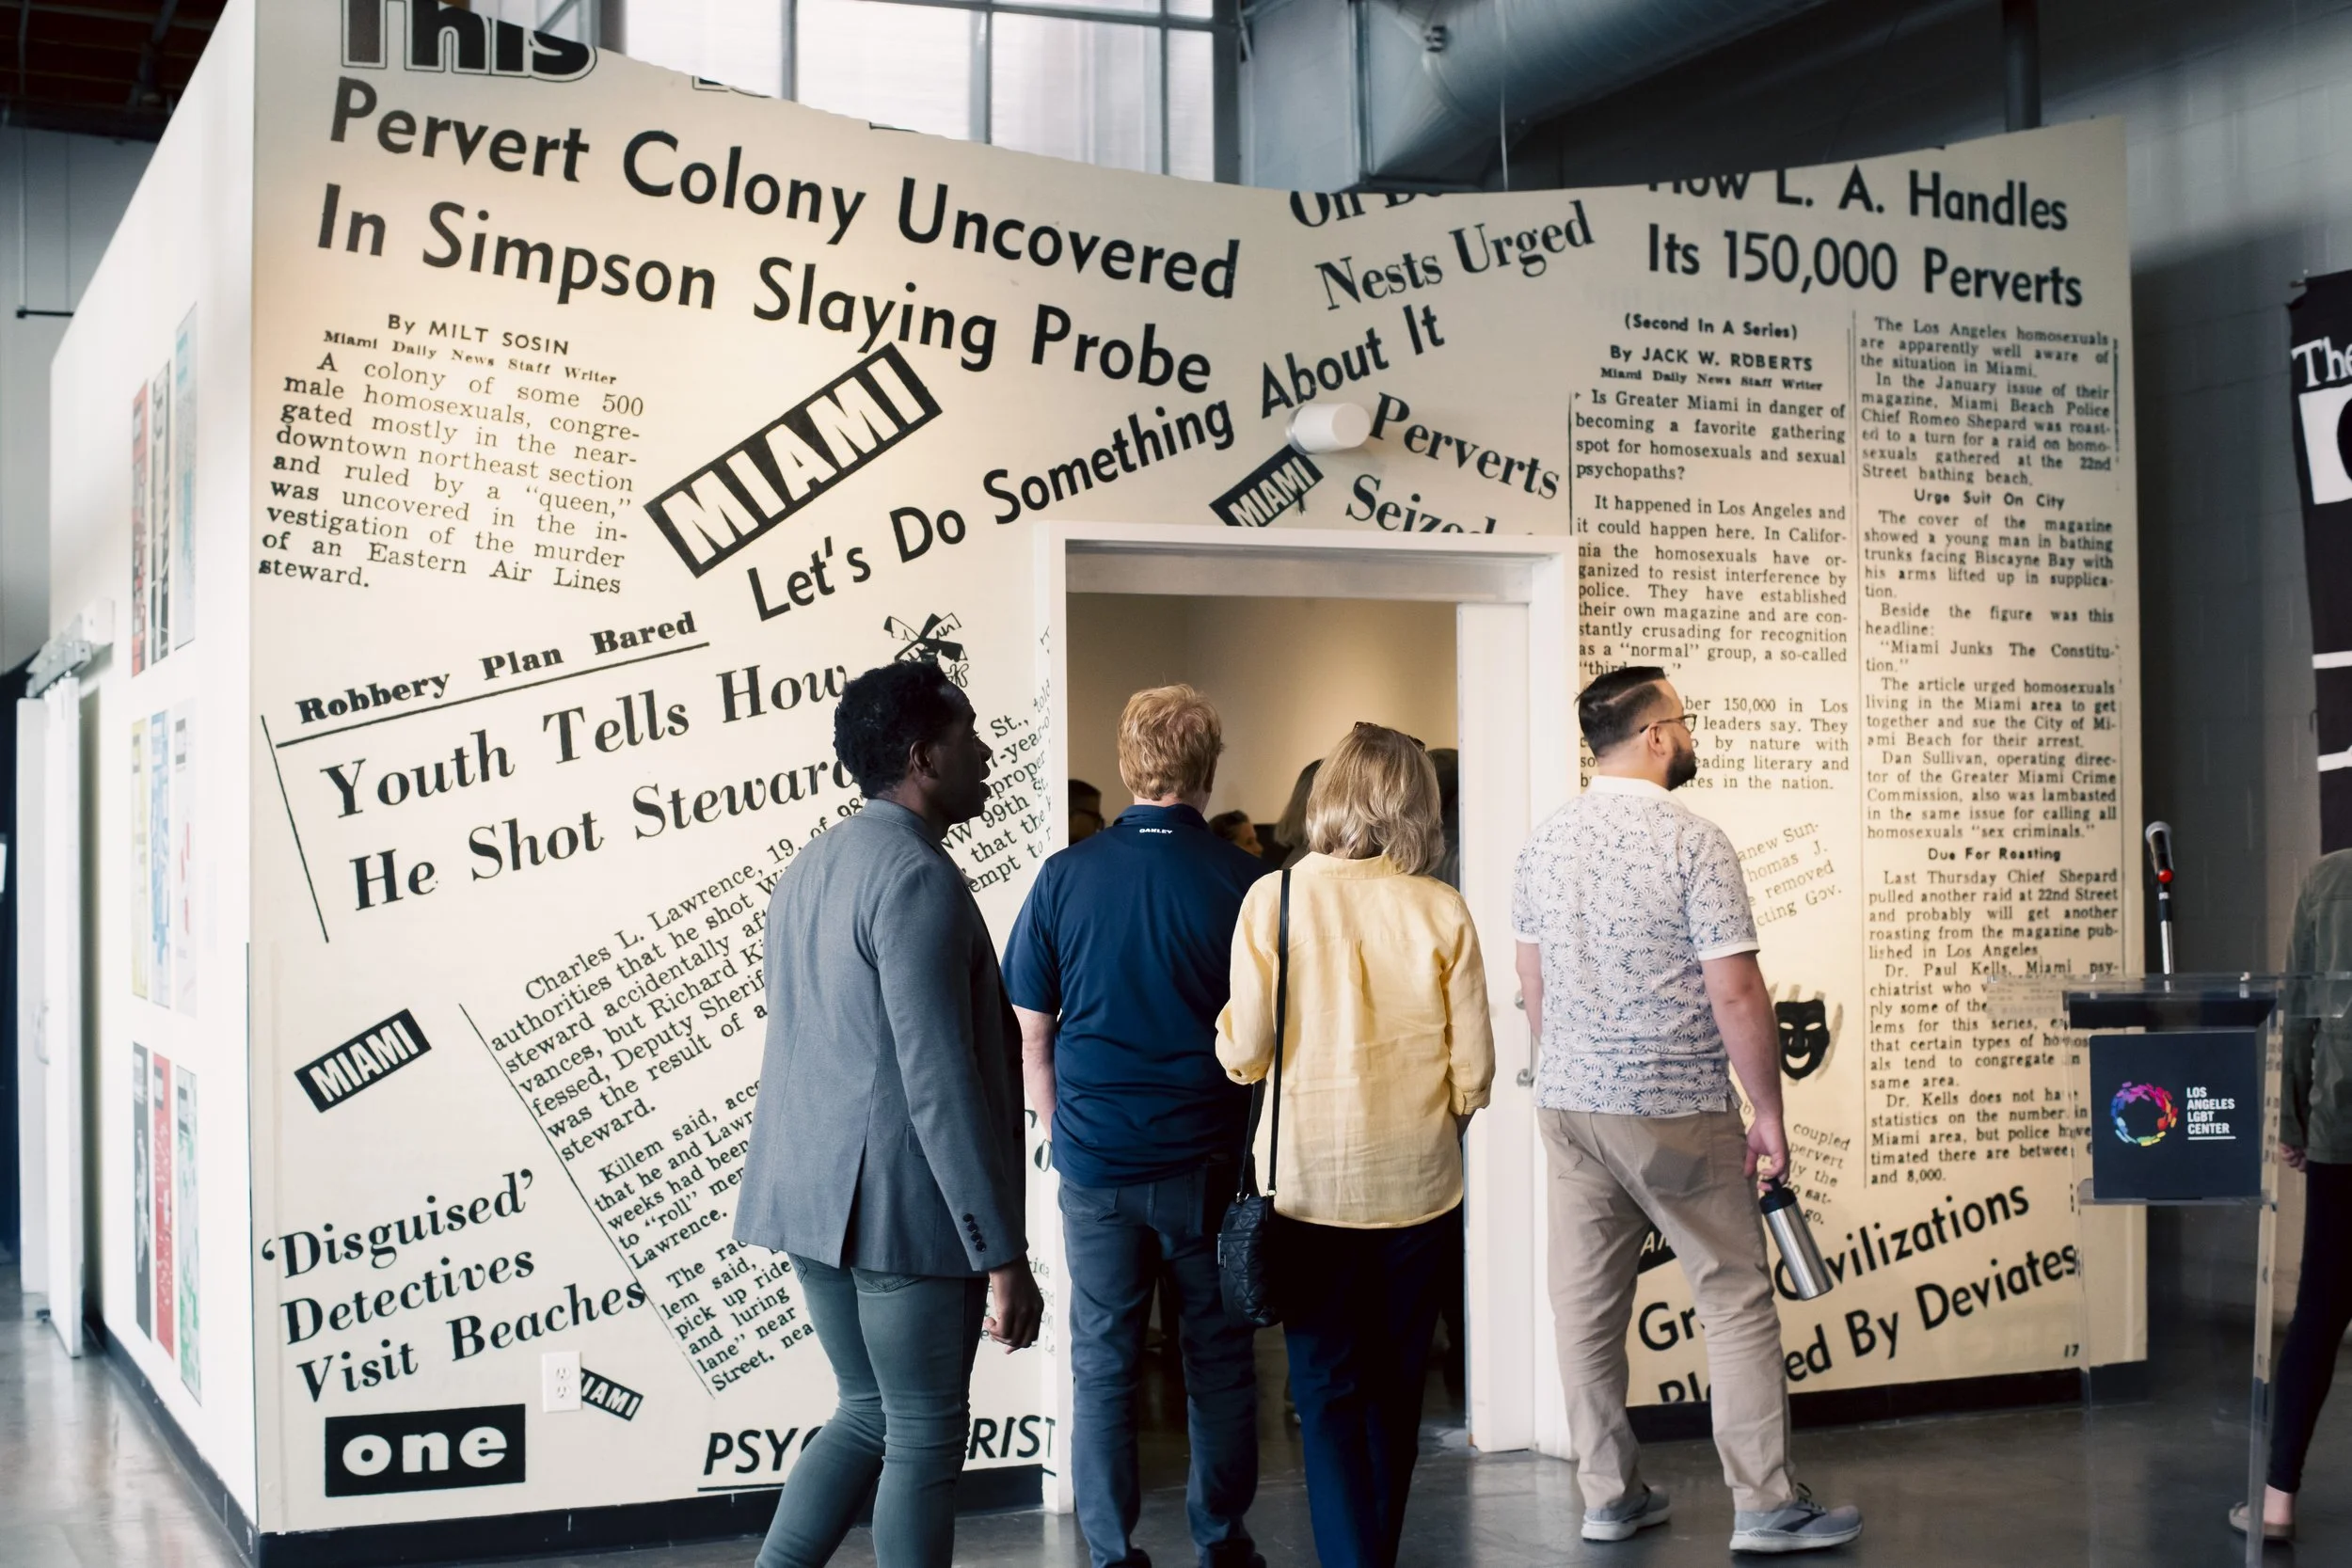 This
Pervert Colony Uncovered
In Simpson Slaying Probe
By MILT SOSIN
Miami Daily News Staff Writer
A colony of some 500
male homosexuals, congre-
gated mostly in the near-
downtown northeast section
and ruled by a "queen,"
was uncovered in the in-
vestigation of the murder
of an Eastern Air Lines
steward.
MIAMI
Nests Urged
Let's Do Something About It
MIAMI
Perverts
Seized
Robbery Plan Bared
Youth Tells How
He Shot Steward
Charles L. Lawrence, 19, of
authorities that he shot
steward accidentally
vances, but Richard
fessed, Deputy Sheriff
was the result of a
steward.
Killem said,
that he and
weeks had been
to "roll"
Lawrence.
The
lem said,
pick up
and luring
lane" near
Street,
St., told
improper
NW 99th St.
that the
MIAMI
'Disguised'
Detectives
Visit Beaches
MIAMI
one
How L. A. Handles
Its 150,000 Perverts
(Second In A Series)
By JACK W. ROBERTS
Miami Daily News Staff Writer
Is Greater Miami in danger of
becoming a favorite gathering
spot for homosexuals and sexual
psychopaths?
It happened in Los Angeles and
it could happen here. In Califor-
nia the homosexuals have or-
ganized to resist interference by
police. They have established
their own magazine and are con-
stantly crusading for recognition
as a "normal" group, a so-called
"third
150,000 in Los
leaders say. They
by nature with
leading literary and
in the nation.
The Los Angeles homosexuals
are apparently well aware of
the situation in Miami.
In the January issue of their
magazine, Miami Beach Police
Chief Romeo Shepard was roast-
ed to a turn for a raid on homo-
sexuals gathered at the 22nd
Street bathing beach.
Urge Suit On City
The cover of the magazine
showed a young man in bathing
trunks facing Biscayne Bay with
his arms lifted up in supplica-
tion.
Beside the figure was this
headline:
"Miami Junks The Constitu-
tion."
The article urged homosexuals
living in the Miami area to get
together and sue the City of Mi-
ami Beach for their arrest.
Dan Sullivan, operating direc-
tor of the Greater Miami Crime
Commission, also was lambasted
in the same issue for calling all
homosexuals "sex criminals."
Due For Roasting
Last Thursday Chief Shepard
pulled another raid at 22nd Street
and probably will get another
roasting from the magazine pub-
lished in Los Angeles.
Dr. Paul Kells, Miami psy-
chiatrist who
ply some of the
lems for this series,
that certain types of
als tend to congregate in
same area.
Dr. Kells does not have
statistics on the number in
Miami area, but police have
timated there are between
and 8,000.
Thomas J.
removed
Gov.
coupled
pervert
the
go.
Civilizations
By Deviates
17
OAKLEY
LOS
ANGELES
LGBT
CENTER
The